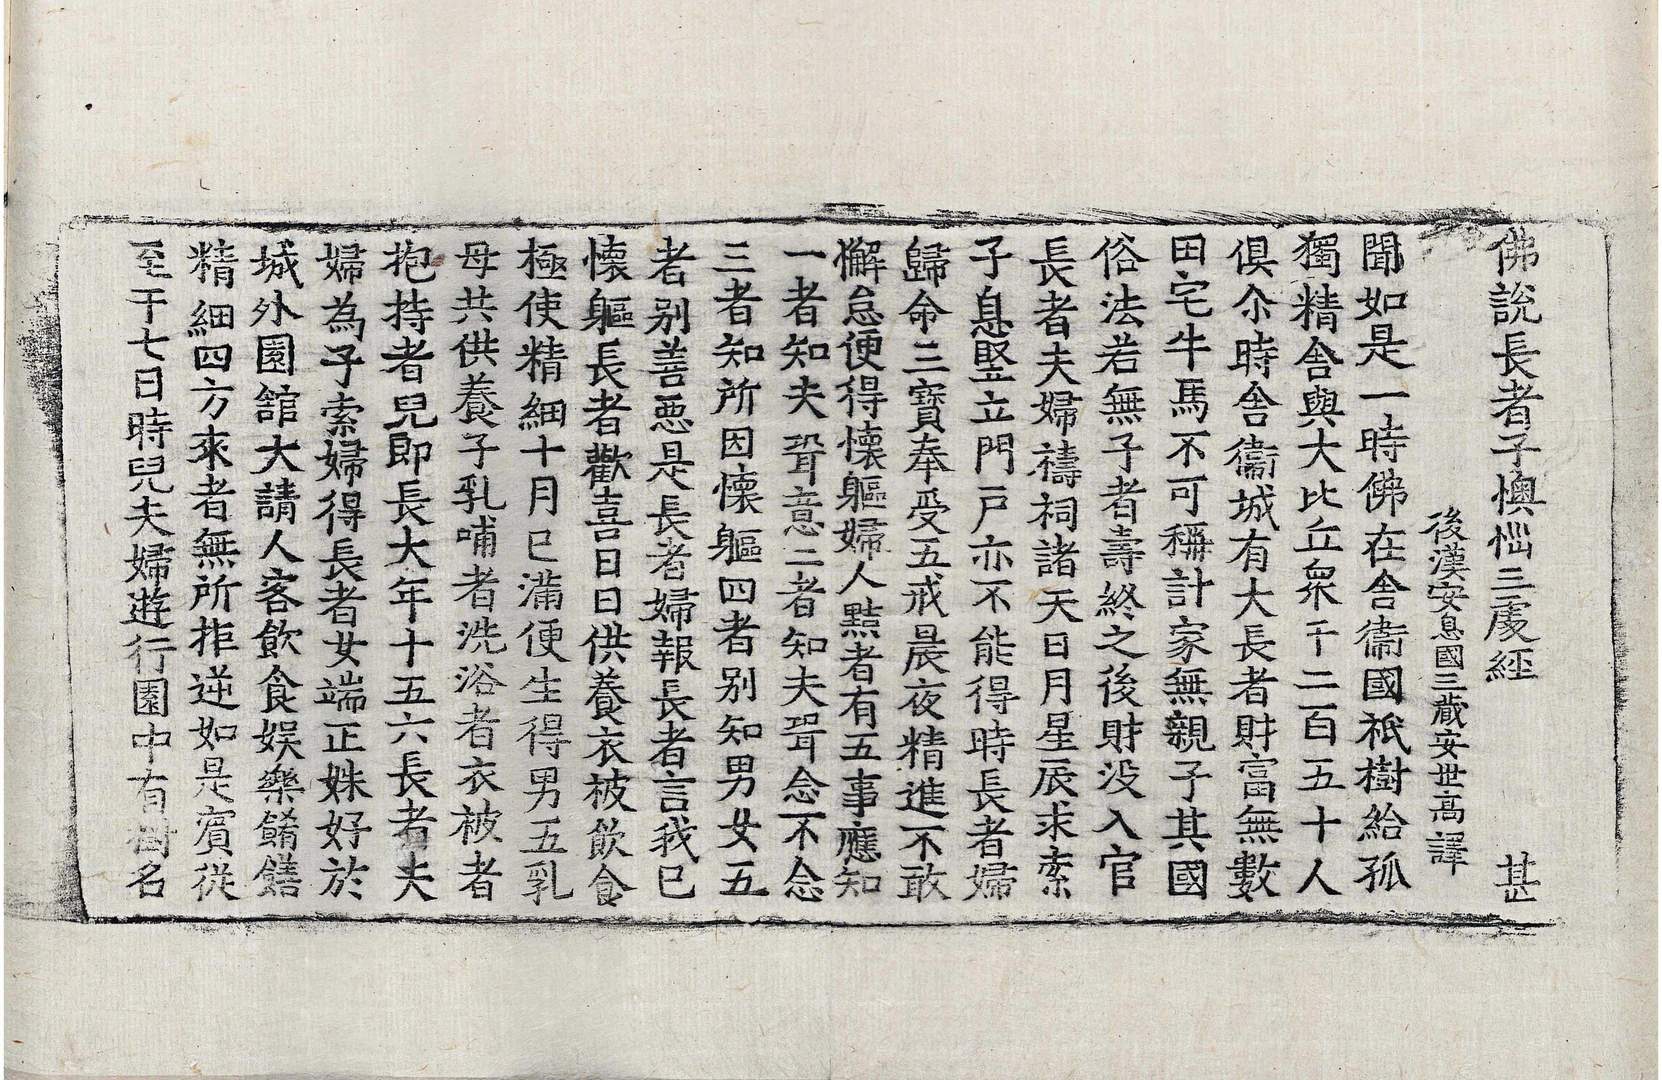 佛說長者子懊惱三處經 甚
後漢安息國三藏安世高譯
聞如是一時佛在舍衛國祇樹給孤
獨精舍與大比丘衆千二百五十人
俱尒時舍衛城有大長者財富無數
田宅牛馬不可稱計家無親子其國
俗法若無子者壽終之後財没入官
長者夫婦禱祠諸天日月星辰求索
子息竪立門戶亦不能得時長者婦
歸命三寶奉受五戒晨夜精進不敢
懈怠便得懷軀婦人黠者有五事應知
一者知夫聟意二者知夫聟念不念
三者知所因懷軀四者别知男女五
者别善惡是長者婦報長者言我已
懷軀長者歡喜日日供養衣被飲食
極使精細十月已滿便生得男五乳
母共供養子乳哺者洗浴者衣被者
抱持者兒即長大年十五六長者夫
婦為子索婦得長者女端正姝好於
城外園舘大請人客飲食娛樂餚饍
精細四方來者無所拒逆如是賓從
至于七日時兒夫婦遊行園中有樹名